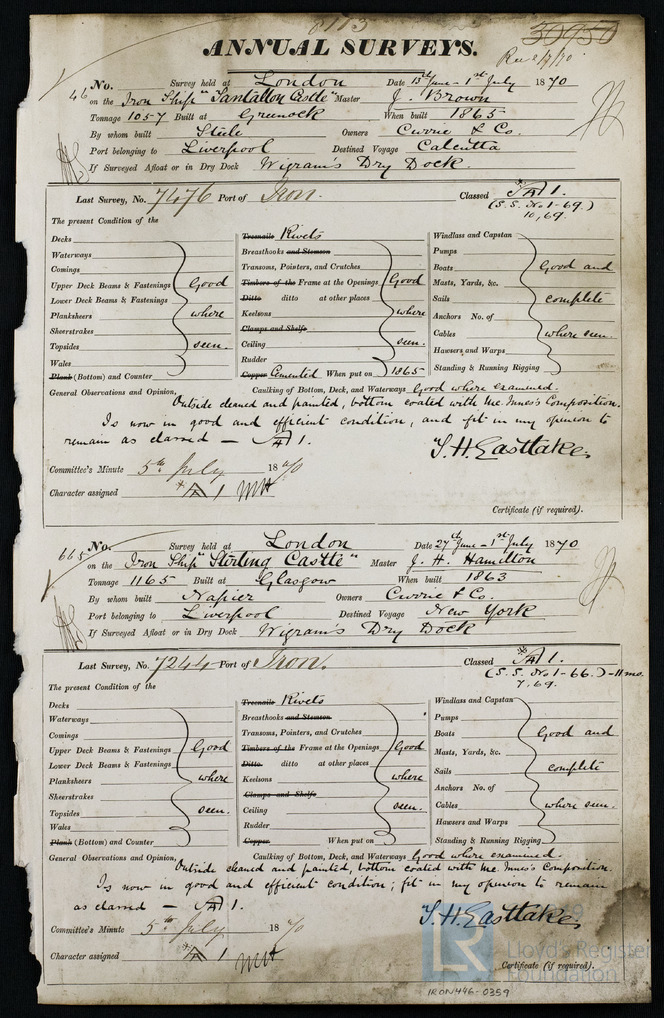 8113
30950
ANNUAL SURVEYS.
Rec 2/7/70
46 No. Survey held at London Date 13th June - 1st July 1870
on the Iron Ship "Tantallon Castle" Master J. Brown
Tonnage 1057 Built at Greenock When built 1865
By whom built Stele Owners Currie & Co.
Port belonging to Liverpool Destined Voyage Calcutta
If Surveyed Afloat or in Dry Dock Wigram's Dry Dock.
Last Survey, No. 7476 Port of Iron. Classed A 1.
(S.S. No 1-69.)
10,69.
The present Condition of the
Decks
Waterways
Comings
Upper Deck Beams & Fastenings
Lower Deck Beams & Fastenings
Planksheers
Sheerstrakes
Topsides
Wales
Plank (Bottom) and Counter
Good
where
seen.
Treenails Rivets
Breasthooks and Stemson
Transons, Pointers, and Crutches
Timbers of the Frame at the Openings
Ditto ditto at other places
Keelsons
Clamps and Shelfs
Ceiling
Rudder
Copper Cemented When put on 1865
Good
where
seen.
Windlass and Capstan
Pumps
Boats
Masts, Yards, &c.
Sails
Anchors No. of
Cables
Hawsers and Warps
Standing & Running Rigging
Good and
complete
where seen.
General Observations and Opinion, Caulking of Bottom, Deck, and Waterways Good where examined.
Outside cleaned and painted, bottom coated with McInnes's Composition.
Is now in good and efficient condition, and fit in my opinion to
remain as classed - A 1.
T. H. Eastlake.
Committee's Minute 5th July 1870
Character assigned A 1
Certificate (if required).
665 No. Survey held at London Date 27th June - 1st July 1870
on the Iron Ship "Stirling Castle" Master J. H. Hamilton
Tonnage 1165 Built at Glasgow When built 1863
By whom built Napier Owners Currie & Co.
Port belonging to Liverpool Destined Voyage New York
If Surveyed Afloat or in Dry Dock Wigram's Dry Dock
Last Survey, No. 7244 Port of Iron. Classed A 1.
(S.S. No 1-66.) - 11 mo.
7,69.
The present Condition of the
Decks
Waterways
Comings
Upper Deck Beams & Fastenings
Lower Deck Beams & Fastenings
Planksheers
Sheerstrakes
Topsides
Wales
Plank (Bottom) and Counter
Good
where
seen.
Treenails Rivets
Breasthooks and Stemson
Transons, Pointers, and Crutches
Timbers of the Frame at the Openings
Ditto ditto at other places
Keelsons
Clamps and Shelfs
Ceiling
Rudder
Copper When put on
Good
where
seen.
Windlass and Capstan
Pumps
Boats
Masts, Yards, &c.
Sails
Anchors No. of
Cables
Hawsers and Warps
Standing & Running Rigging
Good and
complete
where seen.
General Observations and Opinion, Caulking of Bottom, Deck, and Waterways Good where examined.
Outside cleaned and painted, bottom coated with McInnes's Composition.
Is now in good and efficient condition; fit in my opinion to remain
as classed - A 1.
T. H. Eastlake,
Committee's Minute 5th July 1870
Character assigned A 1
LR
Lloyd's Register
Foundation
Certificate (if required).
IRON446-0359